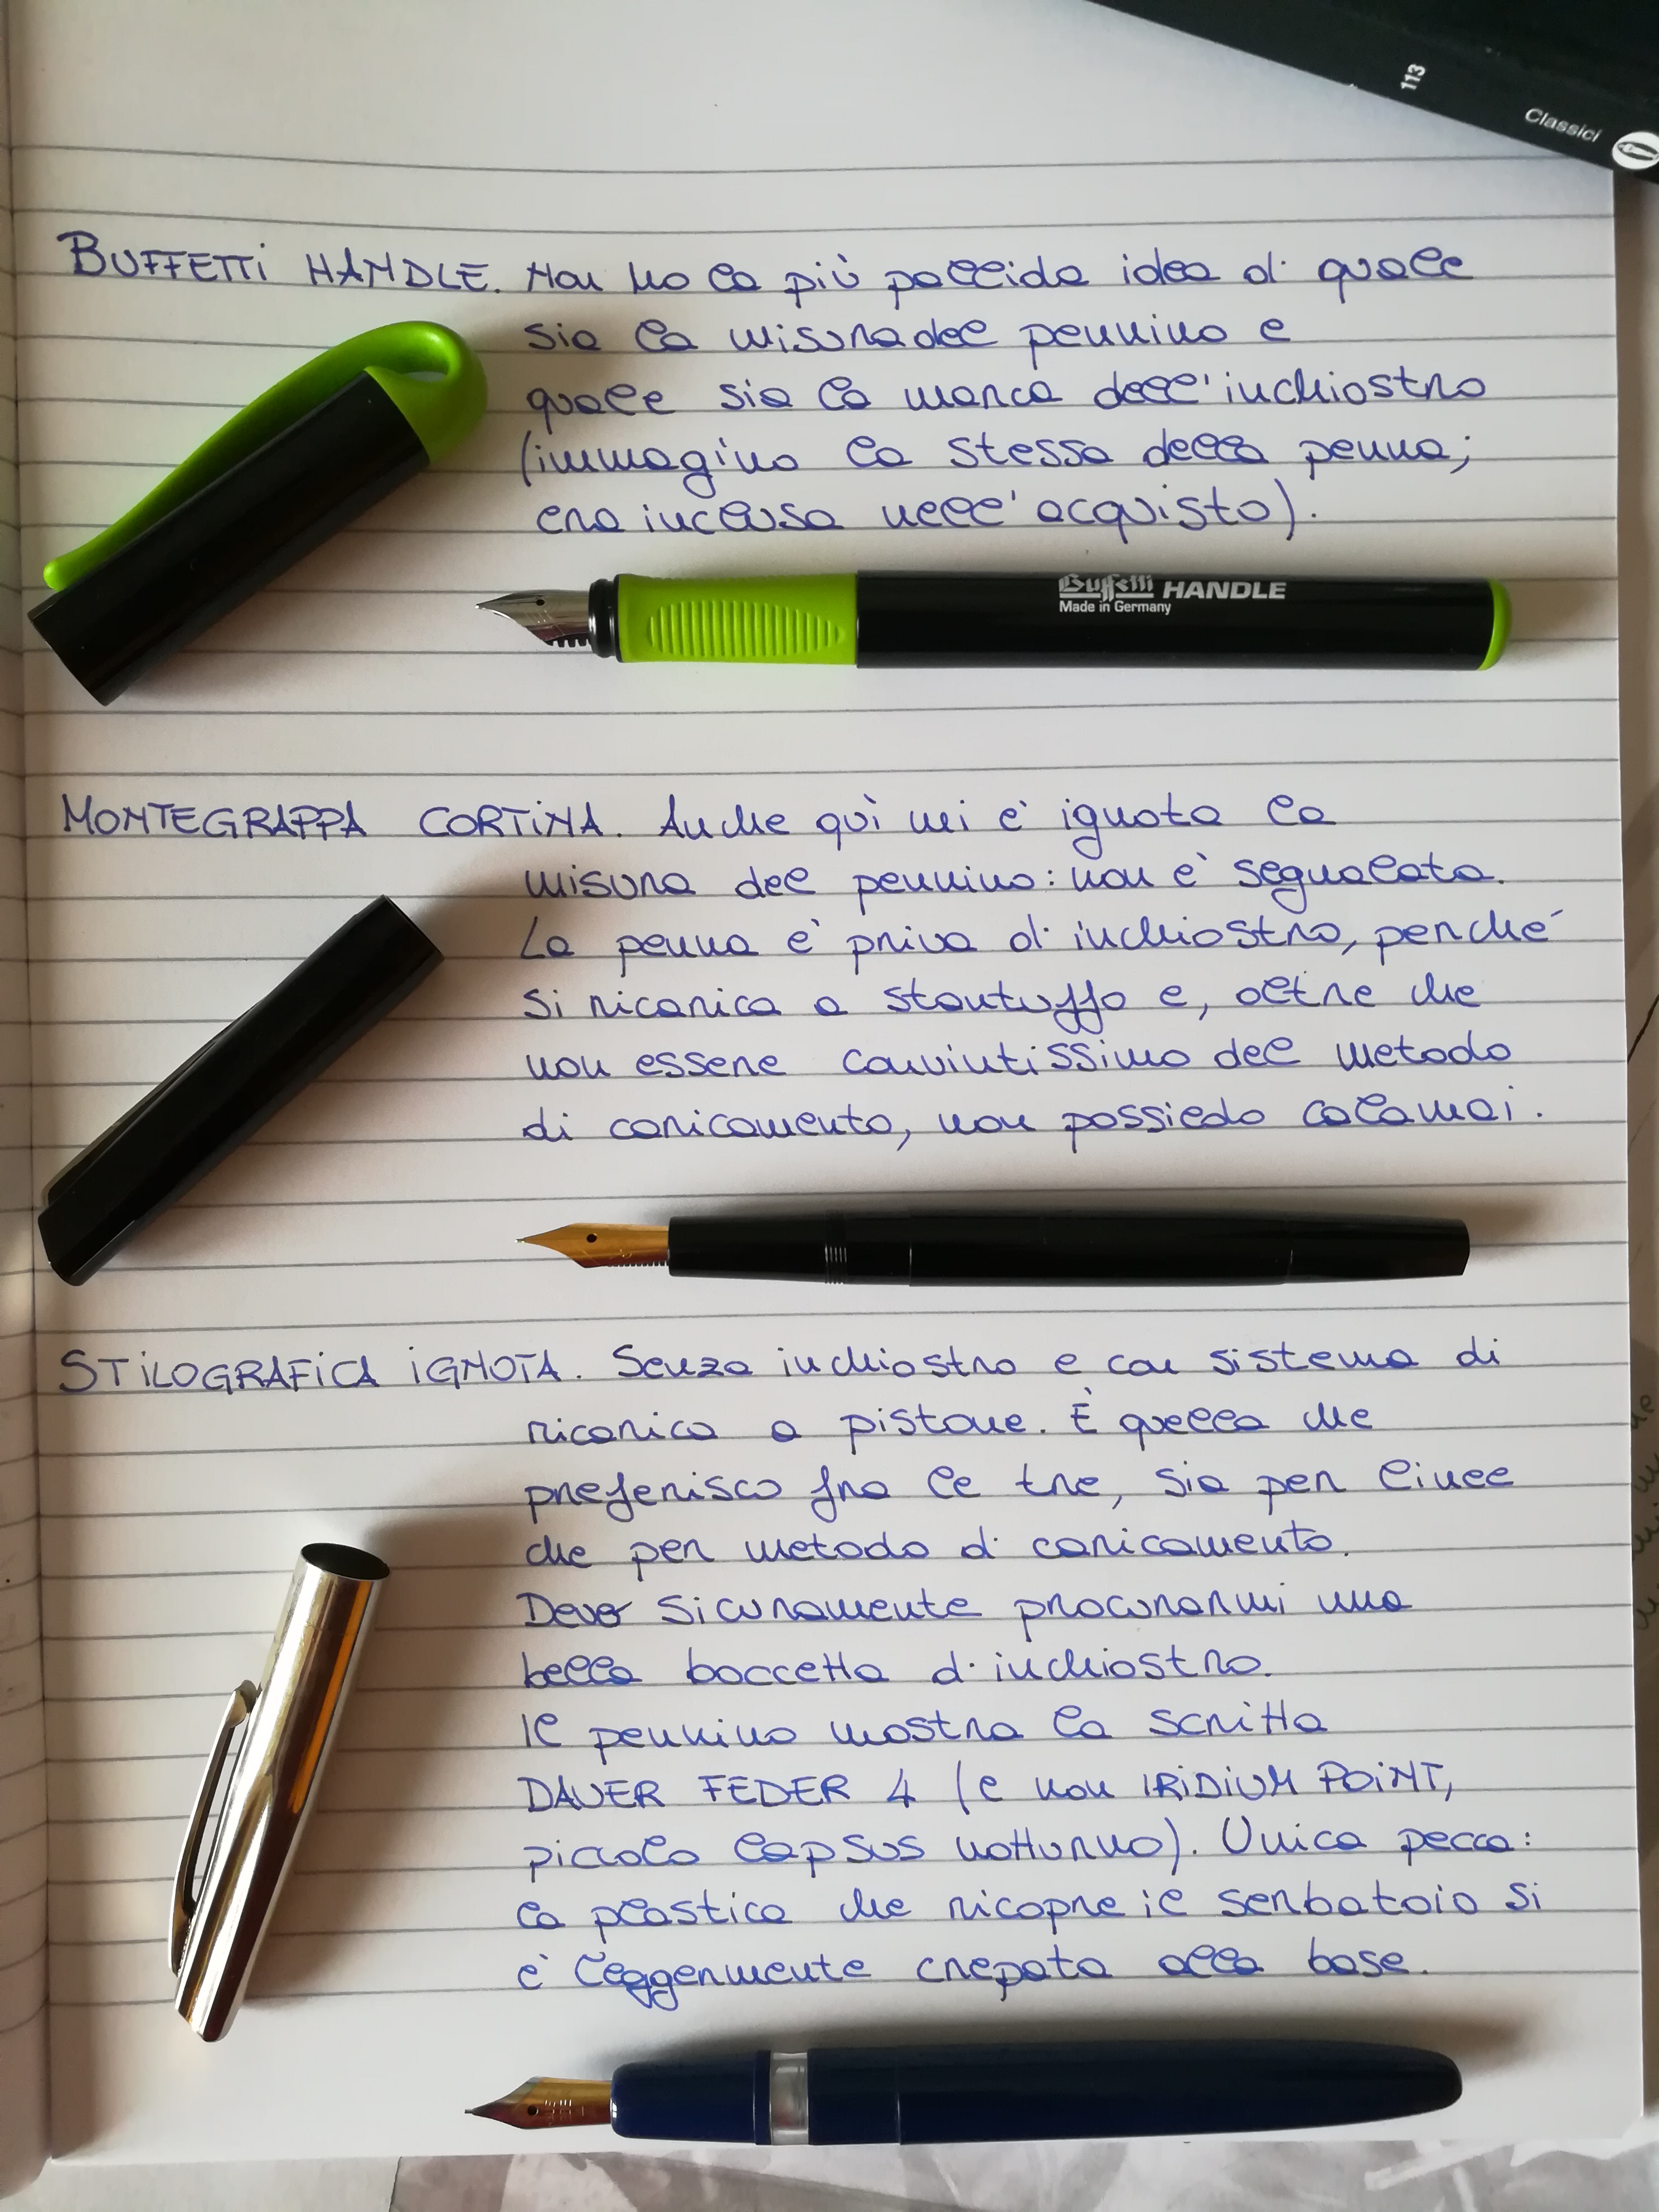 113
Classici
BUFFETTI HANDLE. Non ho la più pallida idea di quale
sia la misura del pennino e
quale sia la marca dell'inchiostro
(immagino la stessa della penna;
era inclusa nell'acquisto).
Buffetti HANDLE
Made in Germany
MONTEGRAPPA CORTINA. Anche quì mi è ignota la
misura del pennino: non è segnalata.
La penna è priva di inchiostro, perché
si ricarica a stantuffo e, oltre che
non essere convintissimo del metodo
di caricamento, non possiedo calamai.
STILOGRAFICA IGNOTA. Senza inchiostro e con sistema di
ricarica a pistone. È quella che
preferisco fra le tre, sia per linee
che per metodo di caricamento.
Devo sicuramente procurarmi una
bella boccetta di inchiostro.
Il pennino mostra la scritta
DAUER FEDER 4 (e non IRIDIUM POINT,
piccolo lapsus notturno). Unica pecca:
la plastica che ricopre il serbatoio si
è leggermente crepata alla base.